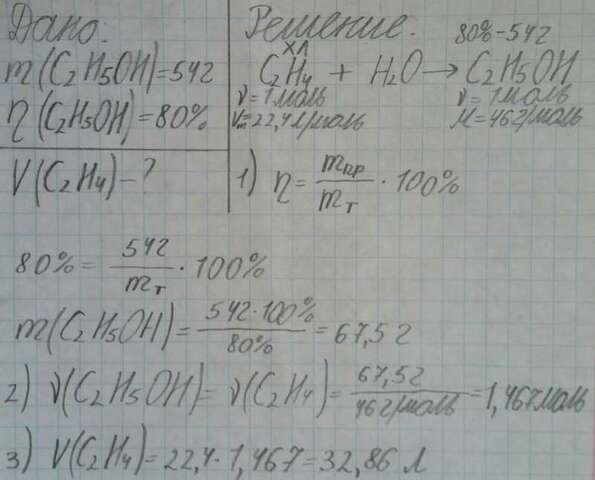 Дано:
m(C₂H₅OH)=54г
η(C₂H₅OH)=80%
V(C₂H₄)-?
Решение.
80%-54г
хл
C₂H₄ + H₂O → C₂H₅OH
ν=1моль ν=1моль
Vₘ=22,4л/моль M=46г/моль
1) η = mпр/mт · 100%
80% = 54г/mт · 100%
m(C₂H₅OH) = 54г·100%/80% = 67,5г
2) ν(C₂H₅OH) = ν(C₂H₄) = 67,5г/46г/моль = 1,467моль
3) V(C₂H₄) = 22,4·1,467 = 32,86 л